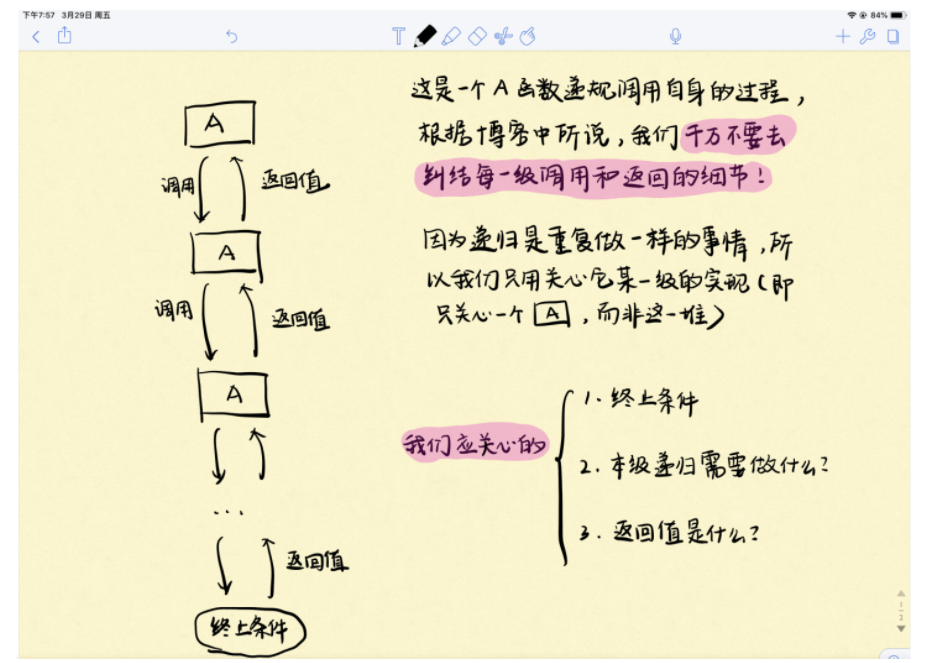 下午7:57 3月29日 周五
84%
A
调用
返回值
A
调用
返回值
A
...
返回值
终止条件
这是一个A函数递规调用自身的过程，
根据博客中所说，我们千万不要去
纠结每一级调用和返回的细节！
因为递归是重复做一样的事情，所
以我们只用关心它某一级的实现（即
只关心一个A，而非这一堆）
我们应关心的
1. 终止条件
2. 本级递归需要做什么？
3. 返回值是什么？
1
2